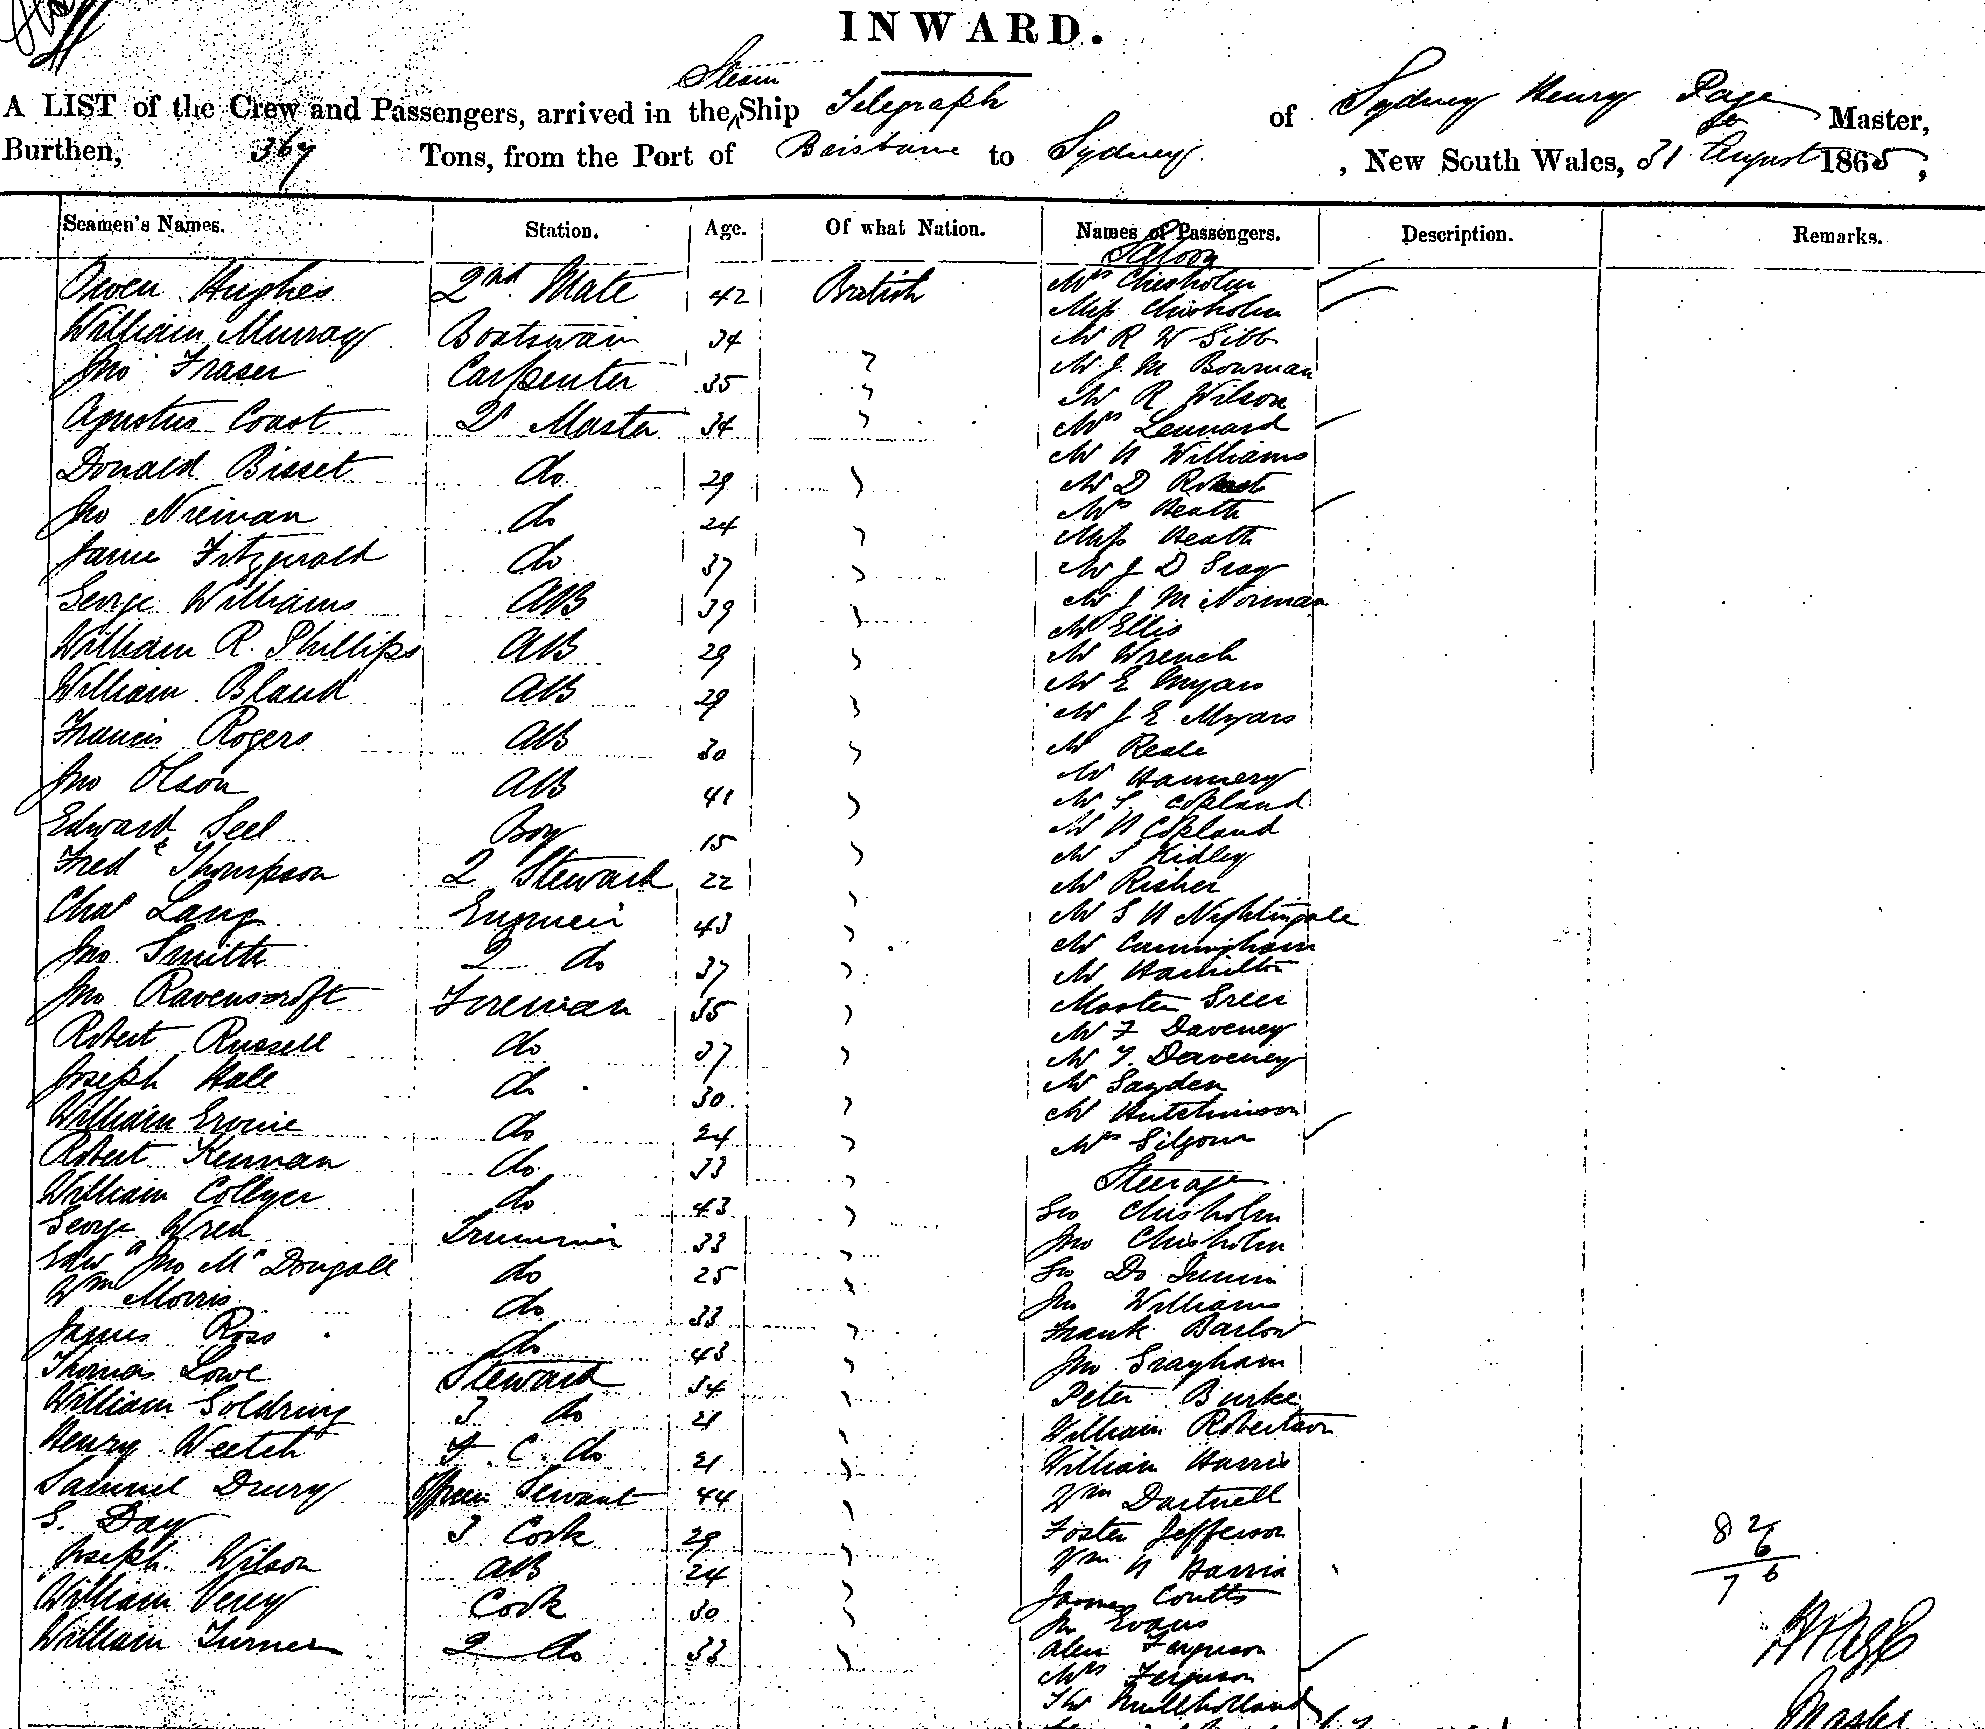 INWARD.
A LIST of the Crew and Passengers, arrived in the Steam Ship Telegraph of Sydney Henry Page Master,
Burthen, 367 Tons, from the Port of Brisbane to Sydney, New South Wales, 31 August 1865,
Seamen's Names. Station. Age. Of what Nation. Names of Passengers. Description. Remarks.
Saloon
Owen Hughes 2nd Mate 42 British Mrs Chisholm
Miss Chisholm
William Murray Boatswain 34 Mr R W Gibb
Jno Fraser Carpenter 35 " Mr J. M Bowman
Mr R Wilson
Agustus Coast Qr Master 34 " Mrs Lennard
Mr H Williams
Donald Bisset do 29 " Mr D
Mrs Heath
Jno Nieman do 24 " Miss Heath
James Fitzgerald do 37 " Mr J D Gray
George Williams AB 39 " Mr J M Norman
Mr Ellis
William R. Phillips AB 29 " Mr Wrench
William Bland AB 29 " Mr E Myars
Mr J E Myars
Francis Rogers AB 30 " Mr Reale
Mr Hannery
Jno Olson AB 41 " Mr S. Copland
Mr H Copland
Edward Seel Boy 15 " Mr S Kidley
Fred Thompson 2 Steward 22 " Mr Risher
Chas Lang Engineer 43 " Mr S H Nightingale
Mr Cunningham
Jno Smith 2 do 37 " Mr Hamilton
Jno Ravenscroft Fireman 35 " Master Greer
Mr F Daveney
Robert Russell do 37 " Mr T. Daveney
Joseph Hale do 30 " Mr Sayden
Mr Hutchinson
William do 24 " Mrs Gilgour
Robert Kernan do 33 " Steerage
William Collyer do 43 " Geo Chisholm
George Wren Trimmer 33 " Jno Chisholm
Edwd Jno McDougall do 25 " Geo Do Junior
Wm Morris do 33 " Jno Williams
James Ross do 43 " Frank Barlow
Thomas Lowe Steward 34 " Jno Grayham
William Goldring 3 do 21 " Peter Burke
William Robertson
Henry Veetch F. C. do 21 " William Harris
Samuel Drury Servant 44 " Wm Dartnell
G. Day 3 Cook 29 " Foster Jefferson
Joseph Wilson AB 24 " Wm H Harris
William Verey Cook 30 " James Coutts
Jno Evans
William Turner 2 do 33 " Alex Ferguson
Mrs Ferguson
Mullholland
82
6
76
Master